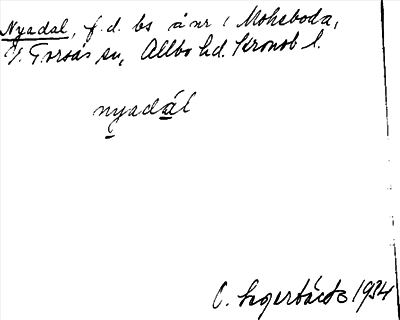 Nyadal, f.d. bs å nr 1 Moheboda,
V. Torsås sn, Allbo hd. Kronob l.
nyadál
C. 1934